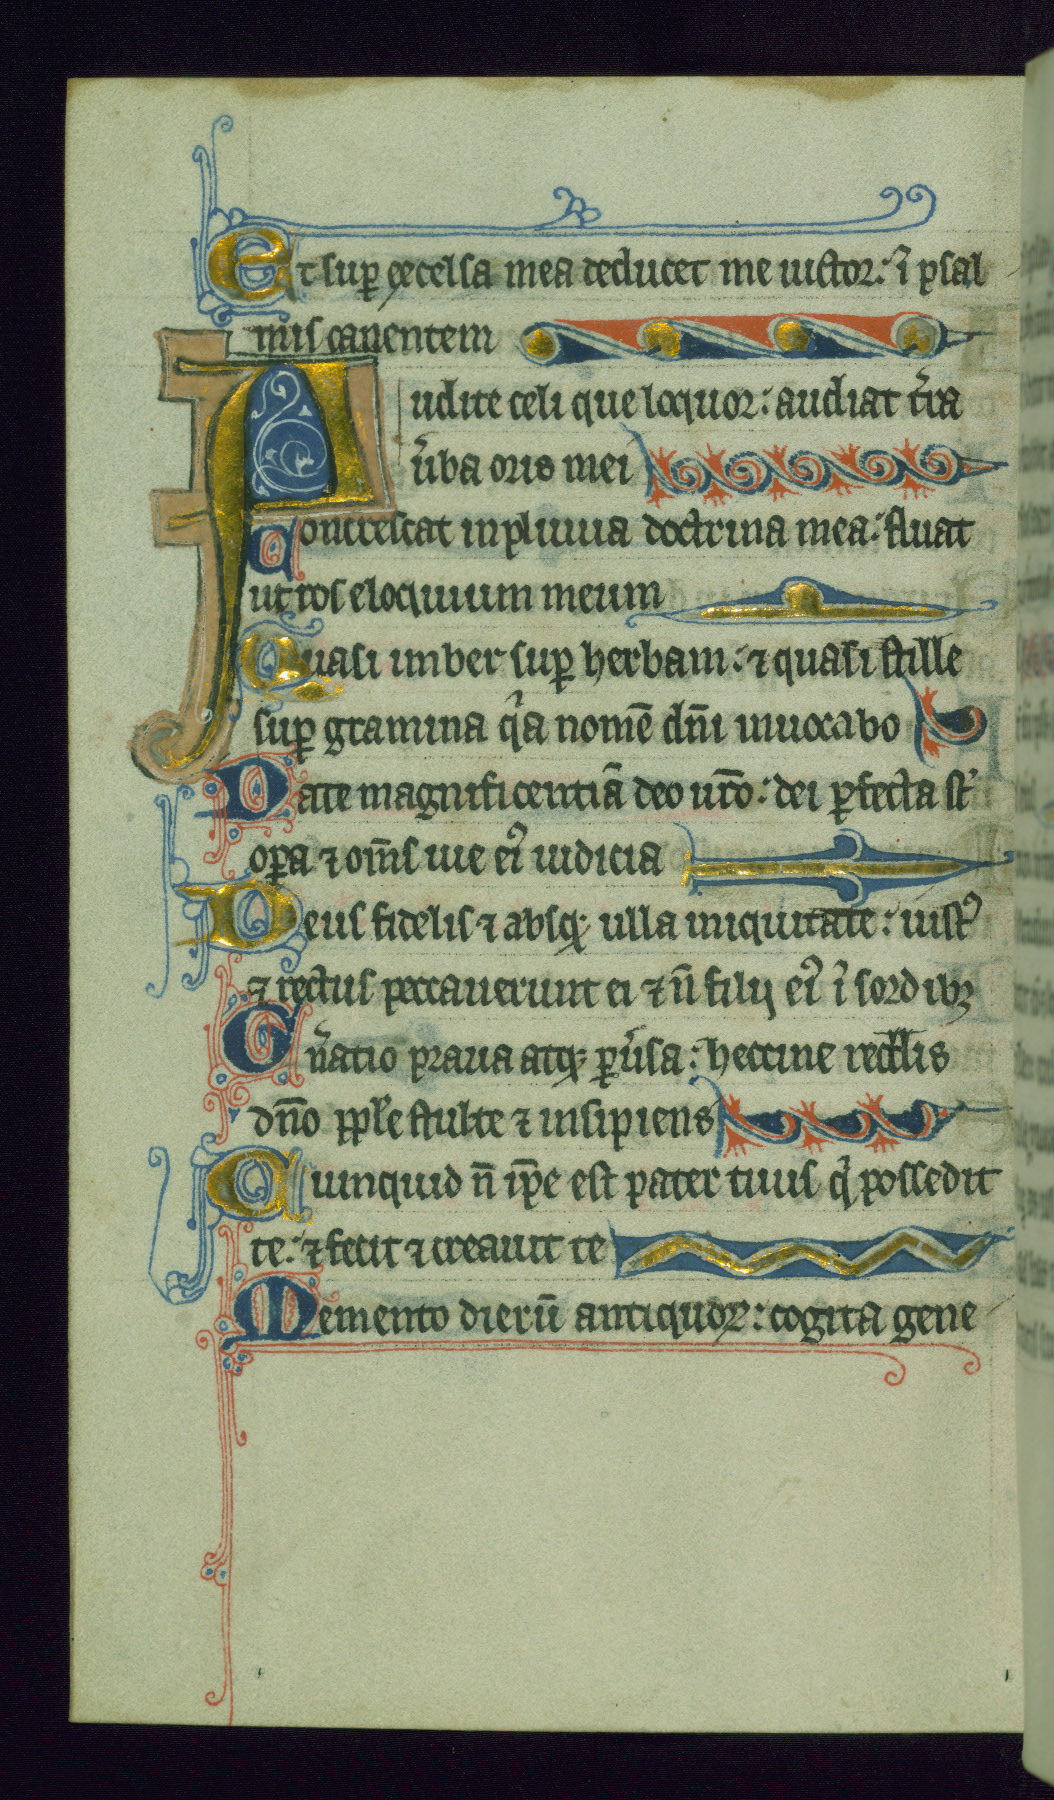 Et suꝑ excelsa mea deducet me uictor: ĩ psal
mis canentem
Audite celi que loquor: audiat t̃ra
ũba oris mei
Concrescat in pluuia doctrina mea: fluat
ut ros eloquium meum
Quasi imber suꝑ herbam: ⁊ quasi stille
suꝑ gramina q̃a nomẽ dñi inuocabo
Date magnificentiã deo ur̃o: dei ꝑfecta st̃
oꝑa ⁊ om̃s uie eiꝰ iudicia
Deus fidelis ⁊ absqꝫ ulla iniquitate: iustꝰ
⁊ rectus peccauerunt ei ⁊ ñ filij eiꝰ ĩ sordibꝫ
Gñatio praua atqꝫ ꝑũsa: heccine reddis
dño pp̃le stulte ⁊ insipiens
Nunquid ñ ip̃e est pater tuus q̇ possedit
te: ⁊ fecit ⁊ creauit te
Memento dierũ antiquoꝝ: cogita gene